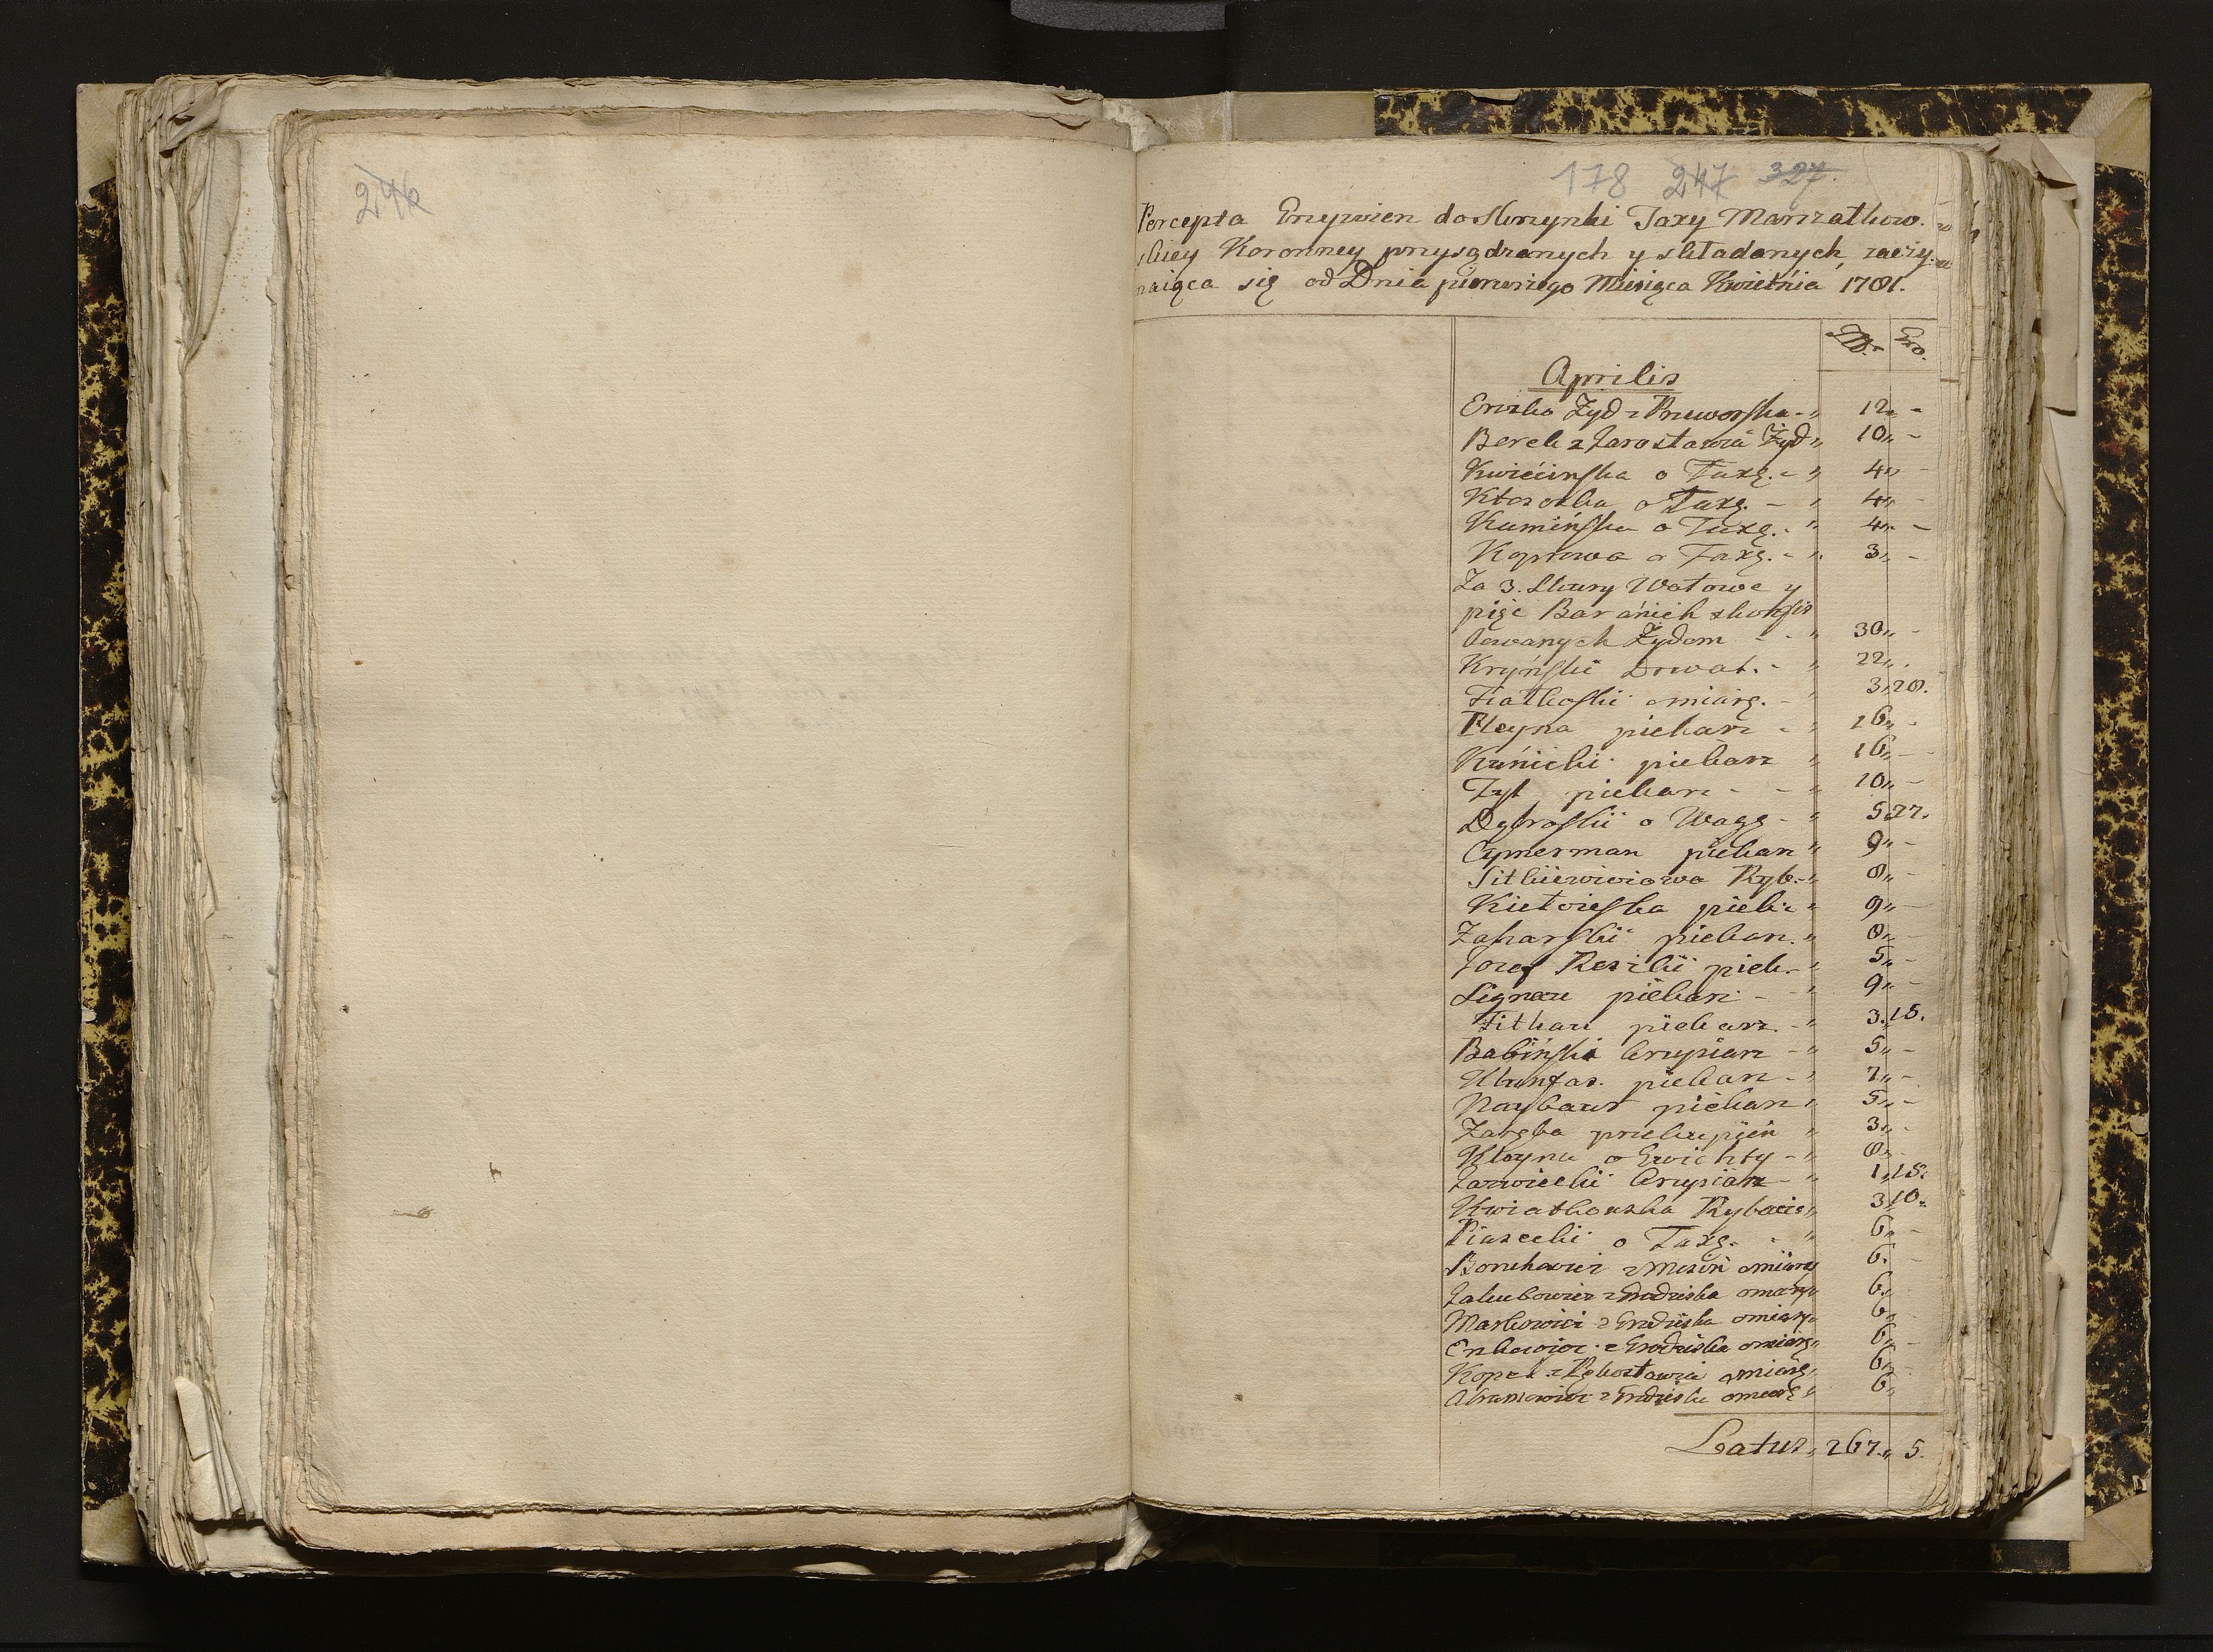 246
178 247 327.
Percepta Grzywien do Skrzynki Taxy Marszałkow.
skiey Koronney przysądzonych y składanych, zaczy.
naiąca się od Dnia pierwszego Miesiąca Kwietnia 1781.
Zł. Gro.
Aprilis
Erszko Żyd z Przeworska - „ 12„ -
Berek z Jarosławia Żyd „ 10„ -
Kwiecińska o Taxę. - „ 4„ -
Kłososka o Taxę. - „ 4„ -
Kamińska o Taxę. - „ 4„ -
Koprowa o Taxę. - „ 3„ -
Za 3. Skury Wołowe y
pięć Baranich skonfis
kowanych Żydom - - „ 30„ -
Kryński Drwal. - „ 22„ .
Fiałkoski o miarę. - „ 3„20.
Kleyna piekarz - „ 16„ -
Kuźnicki piekarz „ 16„ -
Zyt piekarz - - „ 10„ -
Dąbroski o Wagę - „ 5„27.
Cymerman piekarz „ 9„ -
Sitkiewiciowa Ryb. - „ 8„ -
Kiełcieska piek: „ 9„ -
Zaharski piekarz. „ 8„ -
Jozef Reszki piek. - „ 5„ -
Lignau piekarz - - „ 9„ -
Fitkau piekarz. - „ 3.15.
Babiński krupiarz - „ 5„ -
Klunfas. piekarz - „ 7„ -
Naybaur piekarz „ 5„ -
Zaręba przekupień „ 3„ -
Kleyna o Gwichty - „ 8„ -
Jazwiecki krupiarz - „ 1„15.
Kwiatkowska Rybacz: „ 3„10.
Piasecki o Taxę. - „ 6„ -
Boruhowicz z Meszcz: o miarę 6. -
Jakubowicz z Grodziska o miarę „ 6„
Markowicz z Grodziska o miarę „ 6„
Erszkowicz z Grodziska o miarę „ 6„ -
Kopel z Rękosławia o miarę „ 6„ -
Abramowicz z Grodziska o miarę „ 6„
Latus „ 267„ 5.